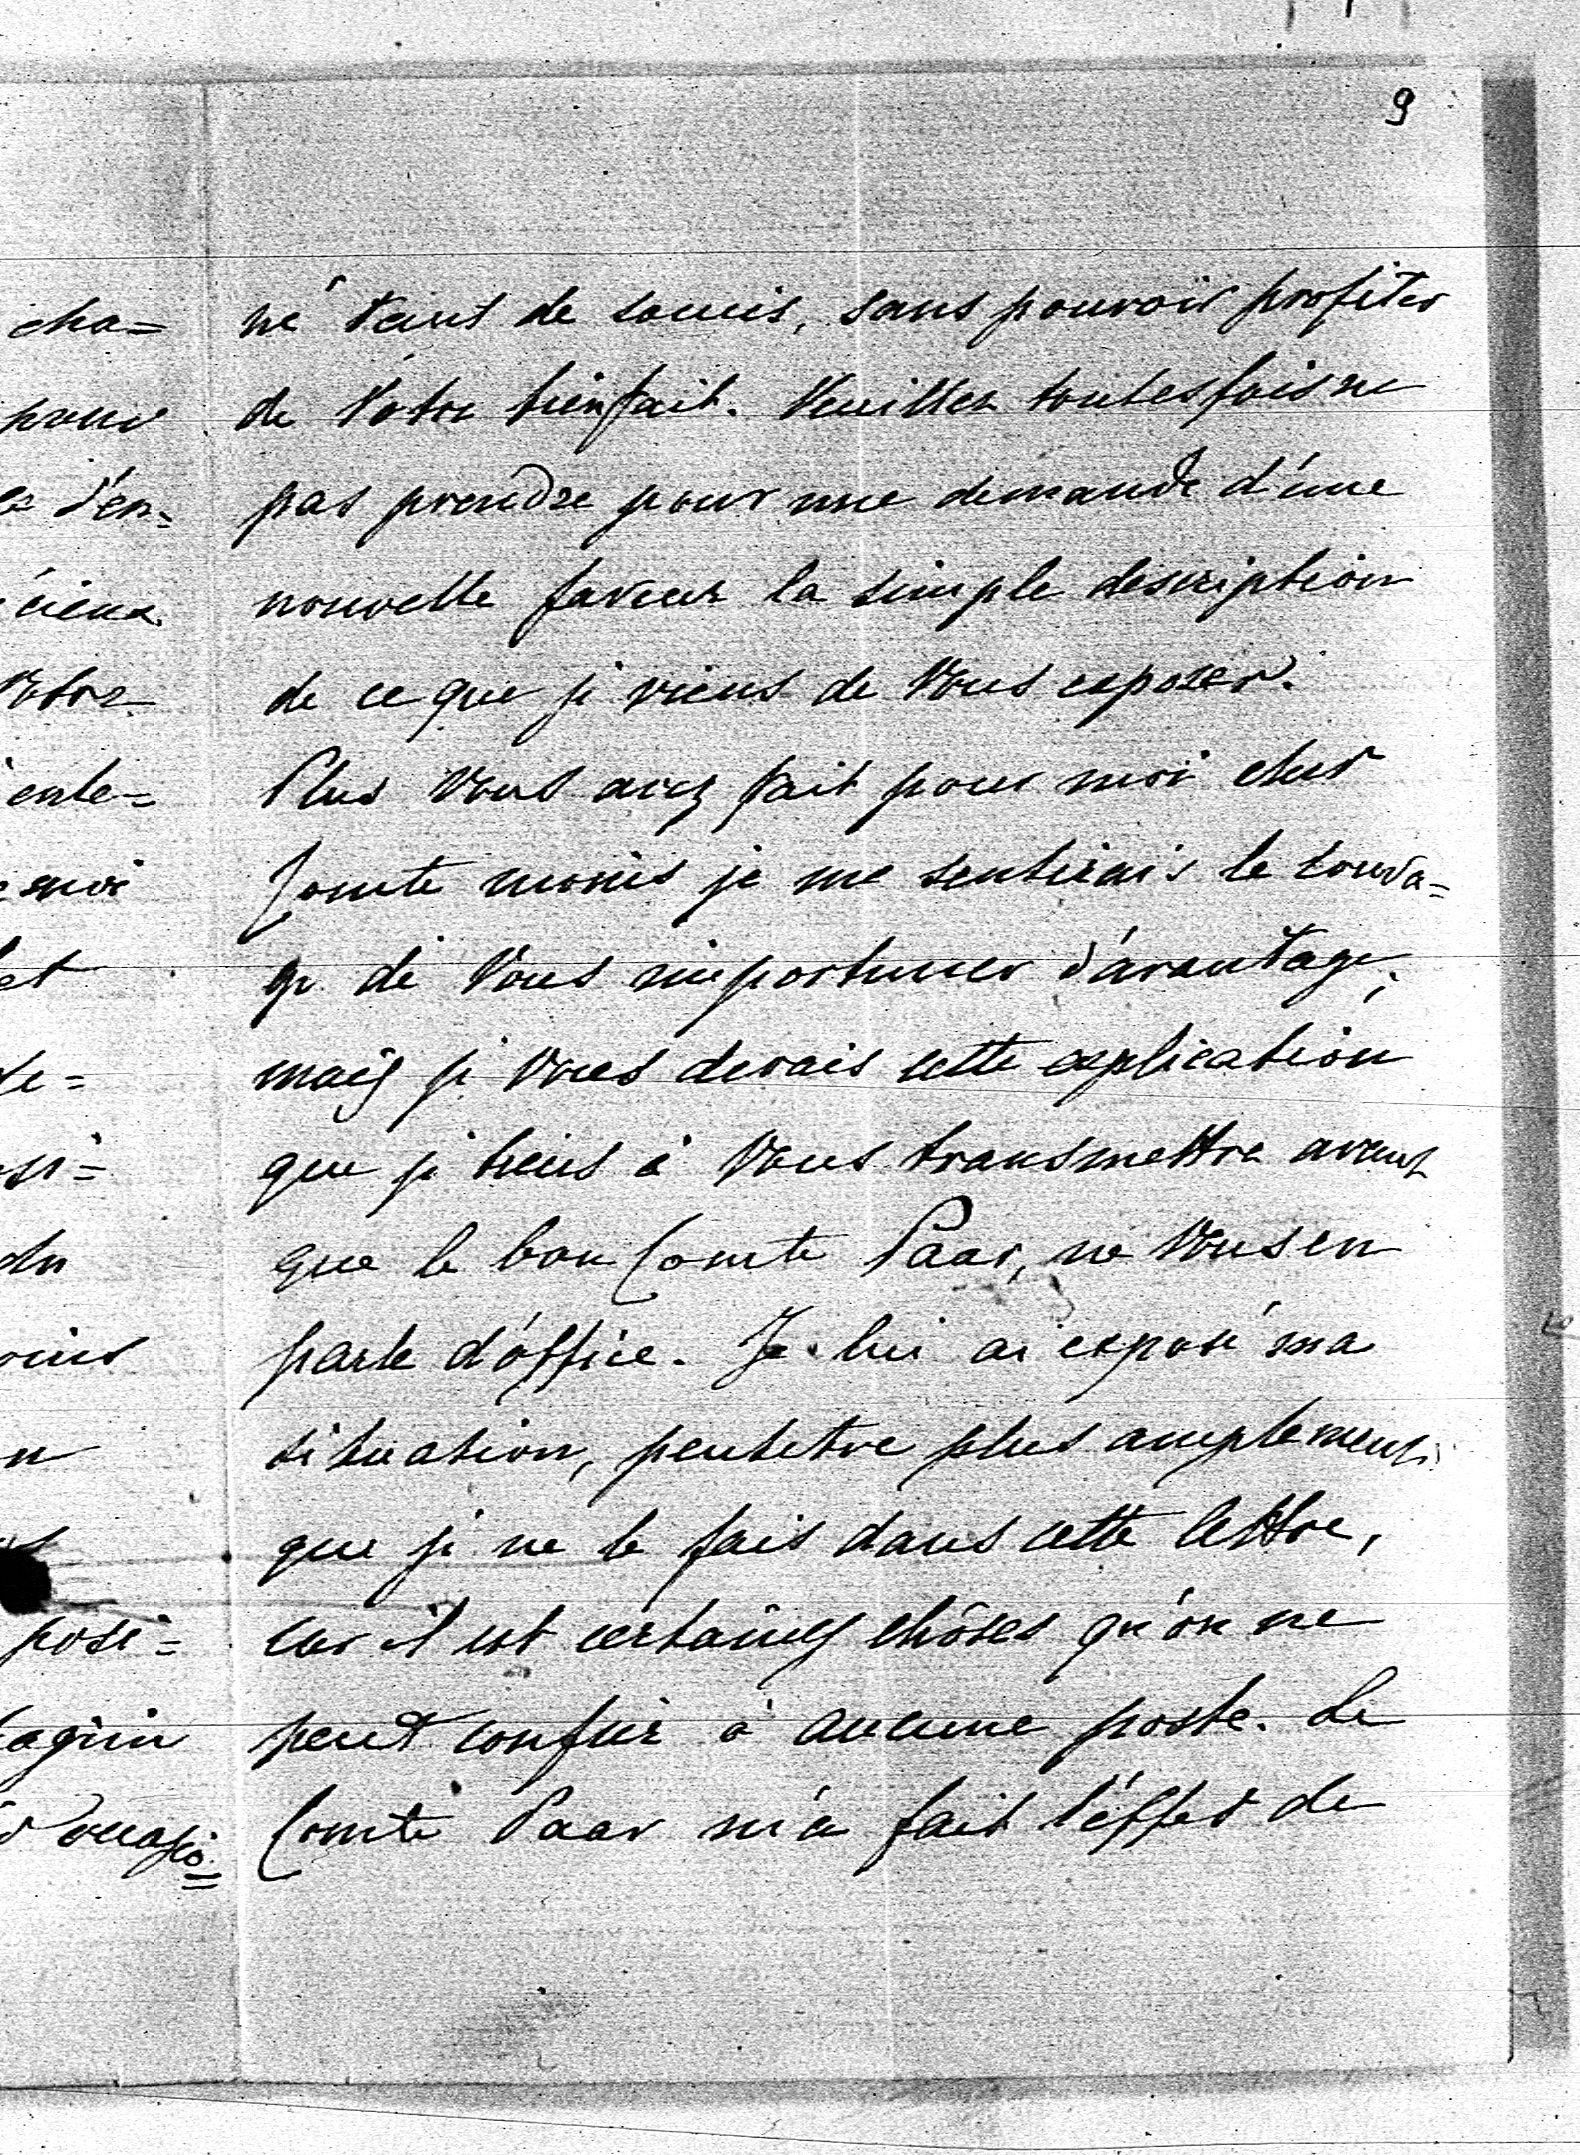 9
né tant de soucis, sans pouvoir profiter
de Votre bienfait. Veuillez toutesfois ne
pas prendre pour une demande d'une
nouvelle faveur la simple description
de ce que je viens de Vous exposer.
Plus Vous avez fait pour moi cher
Comte moins je me sentirais le coura=
ge de Vous importuner d'avantage,
mais je Vous devais cette explication
que je tiens à Vous transmettre avant
que le bon Comte Paar, ne Vous en
parle d'óffice. Je lui ai exposé ma
situation, peutetre plus amplement
que je ne le fais dans cette lettre,
car il est certaines chôses qu'on ne
peut confier à aucune poste. Le
Comte Paar m'a fait l'éffet de
cha=
pour
d'en=
Votre
moi
et
si=
du
posi=